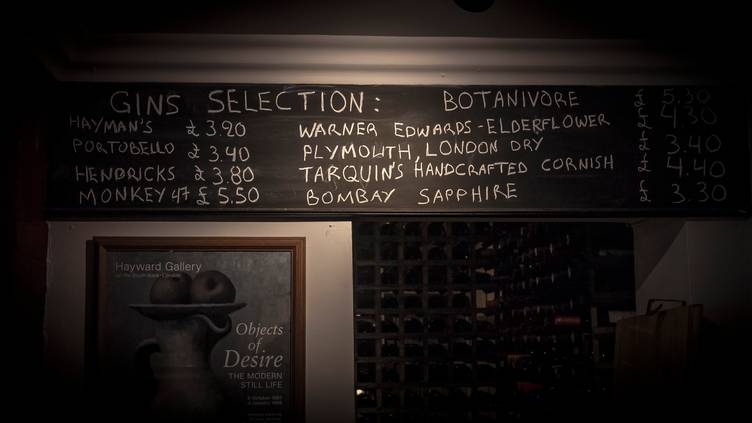 GINS SELECTION:
HAYMAN'S £3.90
PORTOBELLO £3.40
HENDRICKS £3.80
MONKEY 47 £5.50
BOTANIVORE £5.30
WARNER EDWARDS-ELDERFLOWER £4.30
PLYMOUTH, LONDON DRY £3.40
TARQUIN'S HANDCRAFTED CORNISH £4.40
BOMBAY SAPPHIRE £3.30
Hayward Gallery
Objects
of
Desire
THE MODERN
STILL LIFE